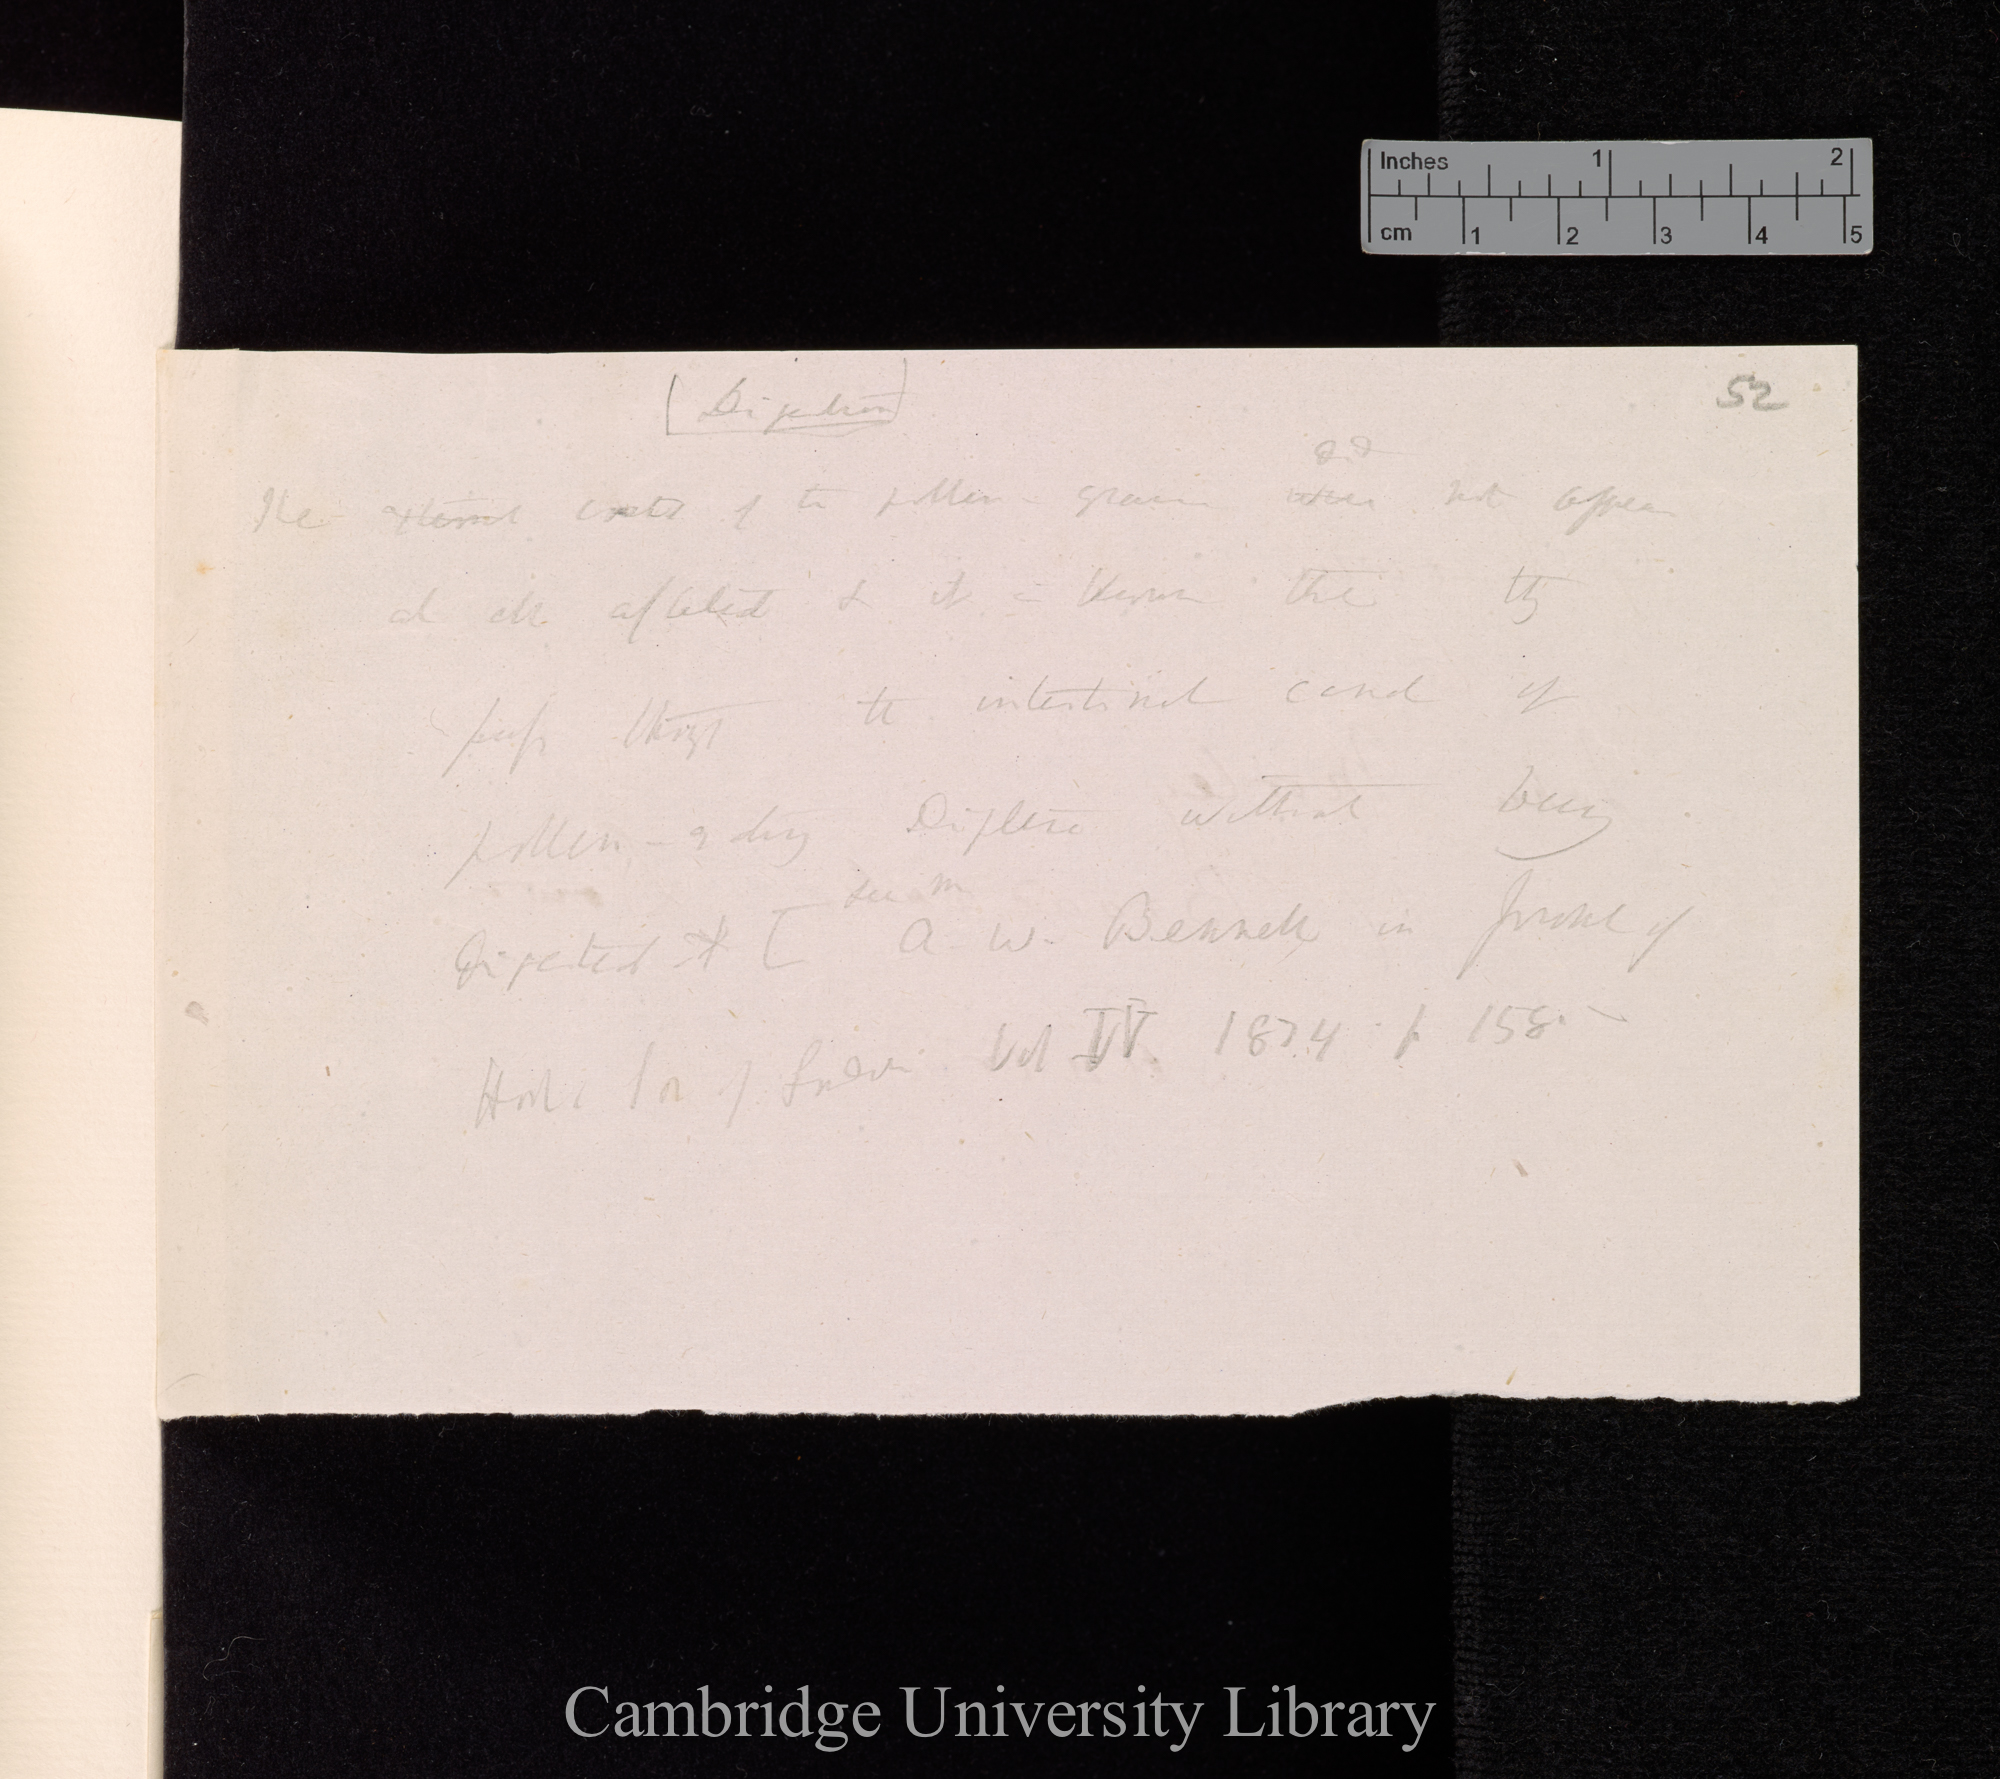 Inches 1 2
cm 1 2 3 4 5
52
[Digestion]
did
The external coats of the pollen-grains were not appear
at all affected & it is known that they
pass through the intestinal canal of
pollen-eating Diptera without being
see Mr
digested [ A. W. Bennett in Journal of
Hort. Soc of London Vol IV. 1874. p 158.
Cambridge University Library